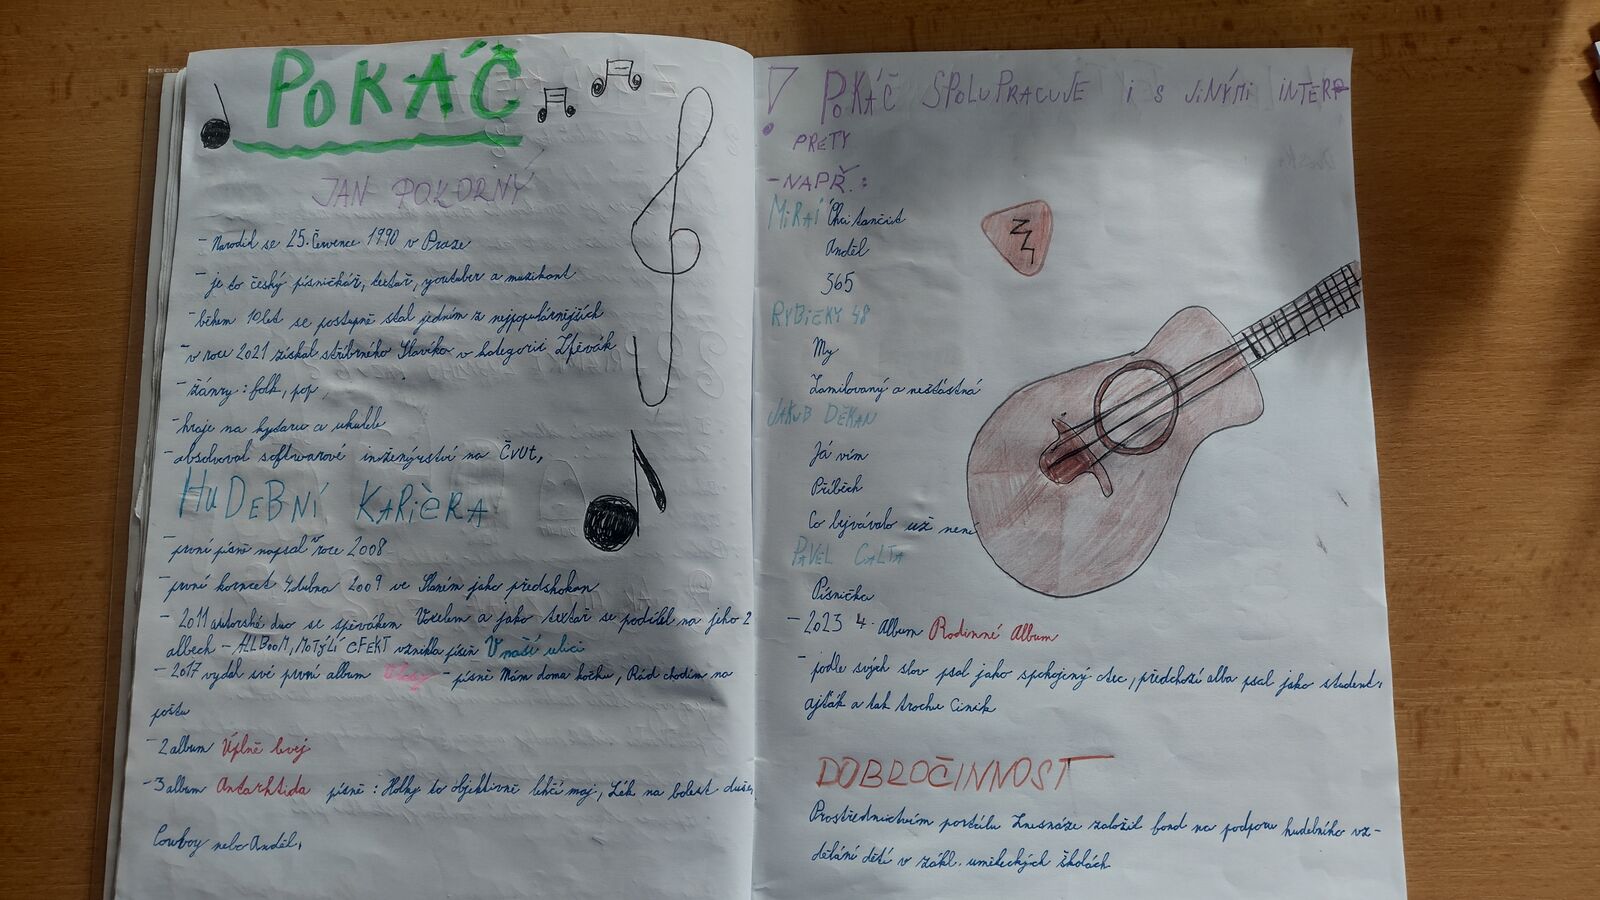 POKÁČ
JAN POKORNÝ
- Narodil se 25. července 1990 v Praze
- je to český písničkář, textař, youtuber a muzikant
- během 10 let se postupně stal jedním z nejpopulárnějších
- v roce 2021 získal stříbrného Slavíka v kategorii Zpěvák
- žánry : folk, pop,
- hraje na kytaru a ukulele
- absolvoval softwarové inženýrství na ČVUT,
HUDEBNÍ KARIÈRA
- první písně napsal v roce 2008
- první koncert 4. dubna 2009 ve Slaném jako předskokan
- 2011 autorské duo se zpěvákem Voxelem a jako textař se podílel na jeho 2
albech - ALL BOOM, MOTÝLÍ EFEKT vznikla píseň V naší ulici
- 2017 vydal své první album Vlasy - písně Mám doma kočku, Rád chodím na
poštu
- 2 album Úplně levej
- 3 album Antarktida písně : Holky to objektivně lehčí maj, Lék na bolest duše,
Cowboy nebo Anděl,
! POKÁČ SPOLUPRACUJE I S JINÝMI INTERP
PRETY
- NAPŘ. :
MIRAI Chci tančit
Anděl
365
RYBIČKY 48
My
Zamilovaný a nešťastná
JAKUB DĚKAN
Já vím
Příběh
Co bývávalo už není
PAVEL CALTA
Písnička
- 2023 4. Album Rodinné Album
- podle svých slov psal jako spokojený otec, předchozí alba psal jako student,
ajťák a tak trochu cinik
DOBROČINNOST
Prostřednictvím portálu Znesnáze založil fond na podporu hudebního vz-
dělání dětí v zákl. uměleckých školách